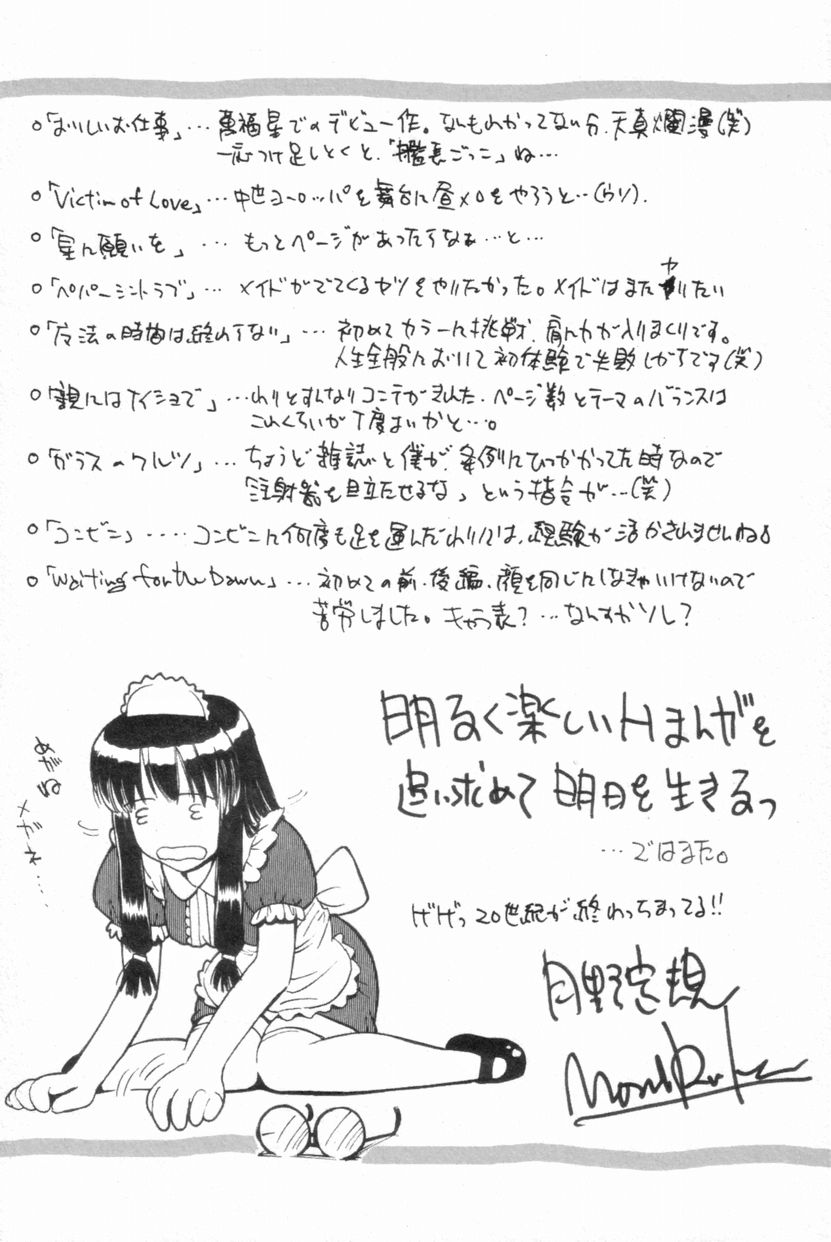 ○「おいしいお仕事」…萬福星でのデビュー作。なんもわかってない分、天真爛漫(笑)
一応つけ足しとくと、「艦長ごっこ」ね…
○「Victim of Love」…中世ヨーロッパを舞台に昼メロをやろうと…(ウソ).
○「星に願いを」…もっとページがあったらなぁ…と…
○「ペパーミントラブ」…メイドがでてくるヤツをやりたかった。メイドはまたヤりたい
○「魔法の時間は終わらない」…初めてカラーに挑戦、肩に力が入りまくりです。
人生全般において初体験で失敗しがちです(笑)
○「親にはナイショで」…わりとすんなりコンテがきれた。ページ数とテーマのバランスは
これくらいが丁度よいかと…。
○「ガラスのワルツ」…ちょうど雑誌と僕が、条例にひっかかってた時なので
「注射器を目立たせるな」という指令が…(笑)
○「コンビニ」……コンビニに何度も足を運んだわりには、経験が活かされませんね
○「Waiting for the Dawn」…初めての前・後編、顔を同じにしなきゃいけないので
苦労しました。キャラ表?…なんすかソレ?
明るく楽しいHまんがを
追い求めて明日を生きるっ
…ではまた。
げげっ20世紀が終わっちまってる!!
月野定規
めがね
メガネ…